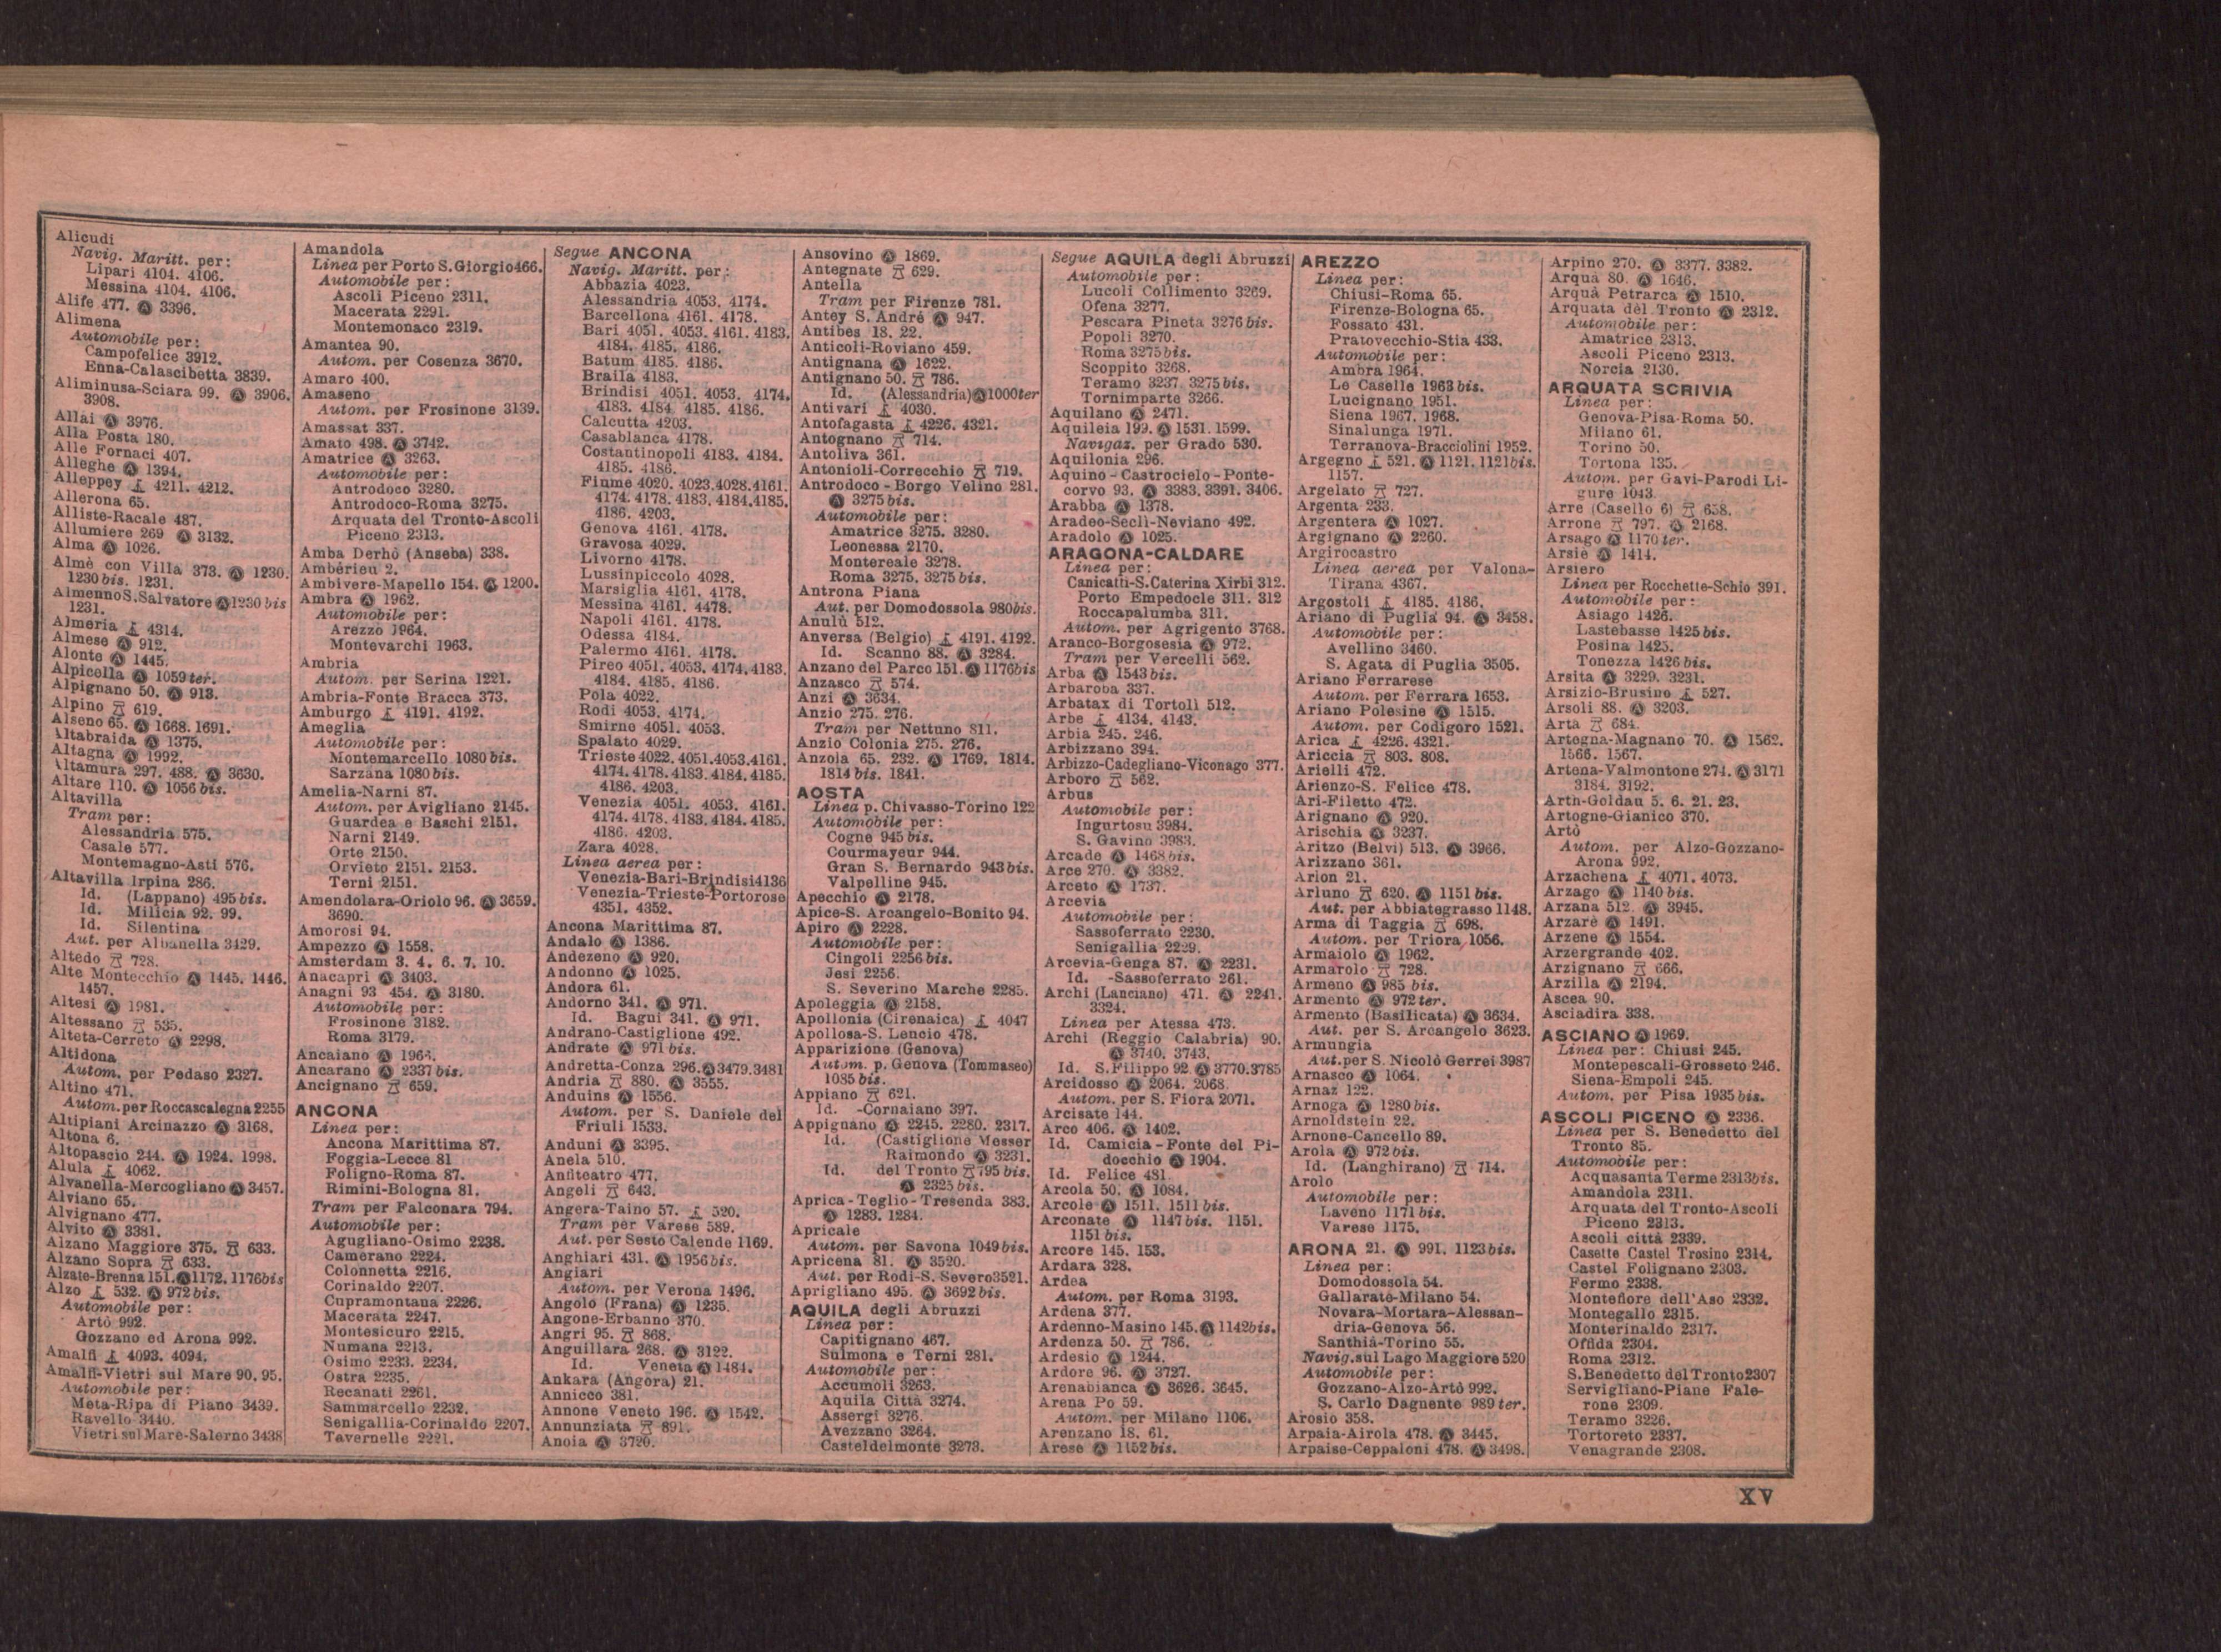 Alicudi
Navig. Maritt. per:
Lipari 4104. 4106.
Messina 4104. 4106.
Alife 477. Ⓐ 3396.
Alimena
Automobile per:
Campofelice 3912.
Enna-Calascibetta 3839.
Aliminusa-Sciara 99. Ⓐ 3906.
3908.
Allai Ⓐ 3976.
Alla Posta 180.
Alle Fornaci 407.
Alleghe Ⓐ 1394.
Alleppey 4211. 4212.
Allerona 65.
Alliste-Racale 487.
Allumiere 269 Ⓐ 3132.
Alma Ⓐ 1026.
Almè con Villa 373. Ⓐ 1230.
1230 bis. 1231.
Almenno S. Salvatore Ⓐ 1230 bis
1231.
Almeria 4314.
Almese Ⓐ 912.
Alonte Ⓐ 1445.
Alpicella Ⓐ 1059 ter.
Alpignano 50. Ⓐ 913.
Alpino 619.
Alseno 65. Ⓐ 1668. 1691.
Altabraida Ⓐ 1375.
Altagna Ⓐ 1992.
Altamura 297. 488. Ⓐ 3630.
Altare 110. Ⓐ 1056 bis.
Altavilla
Tram per:
Alessandria 575.
Casale 577.
Montemagno-Asti 576.
Altavilla Irpina 286.
Id. (Lappano) 495 bis.
Id. Milicia 92. 99.
Id. Silentina
Aut. per Albanella 3429.
Altedo 728.
Alte Montecchio Ⓐ 1445. 1446.
1457.
Altesi Ⓐ 1981.
Altessano 535.
Alteta-Cerreto Ⓐ 2298.
Altidona
Autom. per Pedaso 2327.
Altino 471.
Autom. per Roccascalegna 2255
Altipiani Arcinazzo Ⓐ 3168.
Altona 6.
Altopascio 244. Ⓐ 1924. 1998.
Alula 4062.
Alvanella-Mercogliano Ⓐ 3457.
Alviano 65.
Alvignano 477.
Alvito Ⓐ 3381.
Alzano Maggiore 375. 633.
Alzano Sopra 633.
Alzate-Brenna 151. Ⓐ 1172. 1176bis
Alzo 532. Ⓐ 972 bis.
Automobile per:
Artò 992.
Gozzano ed Arona 992.
Amalfi 4093. 4094.
Amalfi-Vietri sul Mare 90. 95.
Automobile per:
Meta-Ripa di Piano 3439.
Ravello 3440.
Vietri sul Mare-Salerno 3438
Amandola
Linea per Porto S. Giorgio 466.
Automobile per:
Ascoli Piceno 2311.
Macerata 2291.
Montemonaco 2319.
Amantea 90.
Autom. per Cosenza 3670.
Amaro 400.
Amaseno
Autom. per Frosinone 3139.
Amassat 337.
Amato 498. Ⓐ 3742.
Amatrice Ⓐ 3263.
Automobile per:
Antrodoco 3280.
Antrodoco-Roma 3275.
Arquata del Tronto-Ascoli
Piceno 2313.
Amba Derhò (Anseba) 338.
Ambérieu 2.
Ambivere-Mapello 154. Ⓐ 1200.
Ambra Ⓐ 1962.
Automobile per:
Arezzo 1964.
Montevarchi 1963.
Ambria
Autom. per Serina 1221.
Ambria-Fonte Bracca 373.
Amburgo 4191. 4192.
Ameglia
Automobile per:
Montemarcello 1080 bis.
Sarzana 1080 bis.
Amelia-Narni 87.
Autom. per Avigliano 2145.
Guardea e Baschi 2151.
Narni 2149.
Orte 2150.
Orvieto 2151. 2153.
Terni 2151.
Amendolara-Oriolo 96. Ⓐ 3659.
3690.
Amorosi 94.
Ampezzo Ⓐ 1558.
Amsterdam 3. 4. 6. 7. 10.
Anacapri Ⓐ 3403.
Anagni 93 454. Ⓐ 3180.
Automobile per:
Frosinone 3182.
Roma 3179.
Ancaiano Ⓐ 1966.
Ancarano Ⓐ 2337 bis.
Ancignano 659.
ANCONA
Linea per:
Ancona Marittima 87.
Foggia-Lecce 81
Foligno-Roma 87.
Rimini-Bologna 81.
Tram per Falconara 794.
Automobile per:
Agugliano-Osimo 2238.
Camerano 2224.
Colonnetta 2216.
Corinaldo 2207.
Cupramontana 2226.
Macerata 2247.
Montesicuro 2215.
Numana 2213.
Osimo 2233. 2234.
Ostra 2235.
Recanati 2261.
Sammarcello 2232.
Senigallia-Corinaldo 2207.
Tavernelle 2221.
Segue ANCONA
Navig. Maritt. per:
Abbazia 4023.
Alessandria 4053. 4174.
Barcellona 4161. 4178.
Bari 4051. 4053. 4161. 4183.
4184. 4185. 4186.
Batum 4185. 4186.
Braila 4183.
Brindisi 4051. 4053. 4174.
4183. 4184. 4185. 4186.
Calcutta 4203.
Casablanca 4178.
Costantinopoli 4183. 4184.
4185. 4186.
Fiume 4020. 4023. 4028. 4161.
4174. 4178. 4183. 4184. 4185.
4186. 4203.
Genova 4161. 4178.
Gravosa 4029.
Livorno 4178.
Lussinpiccolo 4028.
Marsiglia 4161. 4178.
Messina 4161. 4478.
Napoli 4161. 4178.
Odessa 4184.
Palermo 4161. 4178.
Pireo 4051. 4053. 4174. 4183.
4184. 4185. 4186.
Pola 4022.
Rodi 4053. 4174.
Smirne 4051. 4053.
Spalato 4029.
Trieste 4022. 4051. 4053. 4161.
4174. 4178. 4183. 4184. 4185.
4186. 4203.
Venezia 4051. 4053. 4161.
4174. 4178. 4183. 4184. 4185.
4186. 4203.
Zara 4028.
Linea aerea per:
Venezia-Bari-Brindisi 4136
Venezia-Trieste-Portorose
4351. 4352.
Ancona Marittima 87.
Andalo Ⓐ 1386.
Andezeno Ⓐ 920.
Andonno Ⓐ 1025.
Andora 61.
Andorno 341. Ⓐ 971.
Id. Bagni 341. Ⓐ 971.
Andrano-Castiglione 492.
Andrate Ⓐ 971 bis.
Andretta-Conza 296. Ⓐ 3479. 3481
Andria 880. Ⓐ 3555.
Anduins Ⓐ 1556.
Autom. per S. Daniele del
Friuli 1533.
Anduni Ⓐ 3395.
Anela 510.
Anfiteatro 477.
Angeli 643.
Angera-Taino 57. 520.
Tram per Varese 589.
Aut. per Sesto Calende 1169.
Anghiari 431. Ⓐ 1956 bis.
Angiari
Autom. per Verona 1496.
Angolo (Frana) Ⓐ 1235.
Angone-Erbanno 370.
Angri 95. 868.
Anguillara 268. Ⓐ 3122.
Id. Veneta Ⓐ 1484.
Ankara (Angora) 21.
Annicco 381.
Annone Veneto 196. Ⓐ 1542.
Annunziata 891.
Anoia Ⓐ 3726.
Ansovino Ⓐ 1869.
Antegnate 629.
Antella
Tram per Firenze 781.
Antey S. André Ⓐ 947.
Antibes 18. 22.
Anticoli-Roviano 459.
Antignana Ⓐ 1622.
Antignano 50. 786.
Id. (Alessandria) Ⓐ 1000ter
Antivari 4030.
Antofagasta 4226. 4321.
Antognano 714.
Antoliva 361.
Antonioli-Correcchio 719.
Antrodoco - Borgo Velino 281.
Ⓐ 3275 bis.
Automobile per:
Amatrice 3275. 3280.
Leonessa 2170.
Montereale 3278.
Roma 3275. 3275 bis.
Antrona Piana
Aut. per Domodossola 980bis.
Anulù 512.
Anversa (Belgio) 4191. 4192.
Id. Scanno 88. Ⓐ 3284.
Anzano del Parco 151. Ⓐ 1176bis
Anzasco 574.
Anzi Ⓐ 3634.
Anzio 275. 276.
Tram per Nettuno 811.
Anzio Colonia 275. 276.
Anzola 65. 232. Ⓐ 1769. 1814.
1814 bis. 1841.
AOSTA
Linea p. Chivasso-Torino 122
Automobile per:
Cogne 945 bis.
Courmayeur 944.
Gran S. Bernardo 943 bis.
Valpelline 945.
Apecchio Ⓐ 2178.
Apice-S. Arcangelo-Bonito 94.
Apiro Ⓐ 2228.
Automobile per:
Cingoli 2256 bis.
Jesi 2256.
S. Severino Marche 2285.
Apoleggia Ⓐ 2158.
Apollonia (Cirenaica) 4047
Apollosa-S. Leucio 478.
Apparizione (Genova)
Autom. p. Genova (Tommaseo)
1085 bis.
Appiano 621.
Id. -Cornaiano 397.
Appignano Ⓐ 2245. 2280. 2317.
Id. (Castiglione Messer
Raimondo Ⓐ 3231.
Id. del Tronto 795 bis.
Ⓐ 2325 bis.
Aprica - Teglio - Tresenda 383.
Ⓐ 1283. 1284.
Apricale
Autom. per Savona 1049 bis.
Apricena 81. Ⓐ 3520.
Aut. per Rodi-S. Severo 3521.
Aprigliano 495. Ⓐ 3692 bis.
AQUILA degli Abruzzi
Linea per:
Capitignano 467.
Sulmona e Terni 281.
Automobile per:
Accumoli 3263.
Aquila Città 3274.
Assergi 3276.
Avezzano 3264.
Casteldelmonte 3273.
Segue AQUILA degli Abruzzi
Automobile per:
Lucoli Collimento 3269.
Ofena 3277.
Pescara Pineta 3276 bis.
Popoli 3270.
Roma 3275 bis.
Scoppito 3268.
Teramo 3237. 3275 bis.
Tornimparte 3266.
Aquilano Ⓐ 2471.
Aquileia 199. Ⓐ 1531. 1599.
Navigaz. per Grado 530.
Aquilonia 296.
Aquino - Castrocielo - Ponte-
corvo 93. Ⓐ 3383. 3391. 3406.
Arabba Ⓐ 1378.
Aradeo-Seclì-Neviano 492.
Aradolo Ⓐ 1025.
ARAGONA-CALDARE
Linea per:
Canicattì-S. Caterina Xirbi 312.
Porto Empedocle 311. 312
Roccapalumba 311.
Autom. per Agrigento 3768.
Aranco-Borgosesia Ⓐ 972.
Tram per Vercelli 562.
Arba Ⓐ 1543 bis.
Arbaroba 337.
Arbatax di Tortolì 512.
Arbe 4134. 4143.
Arbia 245. 246.
Arbizzano 394.
Arbizzo-Cadegliano-Viconago 377.
Arboro 562.
Arbus
Automobile per:
Ingurtosu 3984.
S. Gavino 3983.
Arcade Ⓐ 1468 bis.
Arce 270. Ⓐ 3382.
Arceto Ⓐ 1737.
Arcevia
Automobile per:
Sassoferrato 2230.
Senigallia 2229.
Arcevia-Genga 87. Ⓐ 2231.
Id. -Sassoferrato 261.
Archi (Lanciano) 471. Ⓐ 2241.
3324.
Linea per Atessa 473.
Archi (Reggio Calabria) 90.
Ⓐ 3740. 3743.
Id. S. Filippo 92. Ⓐ 3770. 3785
Arcidosso Ⓐ 2064. 2068.
Autom. per S. Fiora 2071.
Arcisate 144.
Arco 406. Ⓐ 1402.
Id. Camicia - Fonte del Pi-
docchio Ⓐ 1904.
Id. Felice 481
Arcola 50. Ⓐ 1084.
Arcole Ⓐ 1511. 1511 bis.
Arconate Ⓐ 1147 bis. 1151.
1151 bis.
Arcore 145. 153.
Ardara 328.
Ardea
Autom. per Roma 3193.
Ardena 377.
Ardenno-Masino 145. Ⓐ 1142bis.
Ardenza 50. 786.
Ardesio Ⓐ 1244.
Ardore 96. Ⓐ 3727.
Arenabianca Ⓐ 3626. 3645.
Arena Po 59.
Autom. per Milano 1106.
Arenzano 18. 61.
Arese Ⓐ 1152 bis.
AREZZO
Linea per:
Chiusi-Roma 65.
Firenze-Bologna 65.
Fossato 431.
Pratovecchio-Stia 433.
Automobile per:
Ambra 1964.
Le Caselle 1963 bis.
Lucignano 1951.
Siena 1967. 1968.
Sinalunga 1971.
Terranova-Bracciolini 1952.
Argegno 521. Ⓐ 1121. 1121bis.
1157.
Argelato 727.
Argenta 233.
Argentera Ⓐ 1027.
Argignano Ⓐ 2260.
Argirocastro
Linea aerea per Valona-
Tirana 4367.
Argostoli 4185. 4186.
Ariano di Puglia 94. Ⓐ 3458.
Automobile per:
Avellino 3460.
S. Agata di Puglia 3505.
Ariano Ferrarese
Autom. per Ferrara 1653.
Ariano Polesine Ⓐ 1515.
Autom. per Codigoro 1521.
Arica 4226. 4321.
Ariccia 803. 808.
Arielli 472.
Arienzo-S. Felice 478.
Ari-Filetto 472.
Arignano Ⓐ 920.
Arischia Ⓐ 3237.
Aritzo (Belvì) 513. Ⓐ 3966.
Arizzano 361.
Arlon 21.
Arluno 620. Ⓐ 1151 bis.
Aut. per Abbiategrasso 1148.
Arma di Taggia 698.
Autom. per Triora 1056.
Armaiolo Ⓐ 1962.
Armarolo 728.
Armeno Ⓐ 985 bis.
Armento Ⓐ 972 ter.
Armento (Basilicata) Ⓐ 3634.
Aut. per S. Arcangelo 3623.
Armungia
Aut. per S. Nicolò Gerrei 3987
Arnasco Ⓐ 1064.
Arnaz 122.
Arnoga Ⓐ 1280 bis.
Arnoldstein 22.
Arnone-Cancello 89.
Arola Ⓐ 972 bis.
Id. (Langhirano) 714.
Arolo
Automobile per:
Laveno 1171 bis.
Varese 1175.
ARONA 21. Ⓐ 991. 1123 bis.
Linea per:
Domodossola 54.
Gallarate-Milano 54.
Novara-Mortara-Alessan-
dria-Genova 56.
Santhià-Torino 55.
Navig. sul Lago Maggiore 520
Automobile per:
Gozzano-Alzo-Artò 992.
S. Carlo Dagnente 989 ter.
Arosio 358.
Arpaia-Airola 478. Ⓐ 3445.
Arpaise-Ceppaloni 478. Ⓐ 3498.
Arpino 270. Ⓐ 3377. 3382.
Arquà 80. Ⓐ 1646.
Arquà Petrarca Ⓐ 1510.
Arquata del Tronto Ⓐ 2312.
Automobile per:
Amatrice 2313.
Ascoli Piceno 2313.
Norcia 2130.
ARQUATA SCRIVIA
Linea per:
Genova-Pisa-Roma 50.
Milano 61.
Torino 50.
Tortona 135.
Autom. per Gavi-Parodi Li-
gure 1043.
Arre (Casello 6) 658.
Arrone 797. Ⓐ 2168.
Arsago Ⓐ 1170 ter.
Arsiè Ⓐ 1414.
Arsiero
Linea per Rocchette-Schio 391.
Automobile per:
Asiago 1426.
Lastebasse 1425 bis.
Posina 1425.
Tonezza 1426 bis.
Arsita Ⓐ 3229. 3231.
Arsizio-Brusino 527.
Arsoli 88. Ⓐ 3203.
Arta 684.
Artegna-Magnano 70. Ⓐ 1562.
1566. 1567.
Artena-Valmontone 274. Ⓐ 3171
3184. 3192.
Arth-Goldau 5. 6. 21. 23.
Artogne-Gianico 370.
Artò
Autom. per Alzo-Gozzano-
Arona 992.
Arzachena 4071. 4073.
Arzago Ⓐ 1140 bis.
Arzana 512. Ⓐ 3945.
Arzarè Ⓐ 1491.
Arzene Ⓐ 1554.
Arzergrande 402.
Arzignano 666.
Arzilla Ⓐ 2194.
Ascea 90.
Asciadira 338.
ASCIANO Ⓐ 1969.
Linea per: Chiusi 245.
Montepescali-Grosseto 246.
Siena-Empoli 245.
Autom. per Pisa 1935 bis.
ASCOLI PICENO Ⓐ 2336.
Linea per S. Benedetto del
Tronto 85.
Automobile per:
Acquasanta Terme 2313bis.
Amandola 2311.
Arquata del Tronto-Ascoli
Piceno 2313.
Ascoli città 2339.
Casette Castel Trosino 2314.
Castel Folignano 2303.
Fermo 2338.
Montefiore dell'Aso 2332.
Montegallo 2315.
Monterinaldo 2317.
Offida 2304.
Roma 2312.
S. Benedetto del Tronto 2307
Servigliano-Piane Fale-
rone 2309.
Teramo 3226.
Tortoreto 2337.
Venagrande 2308.
XV